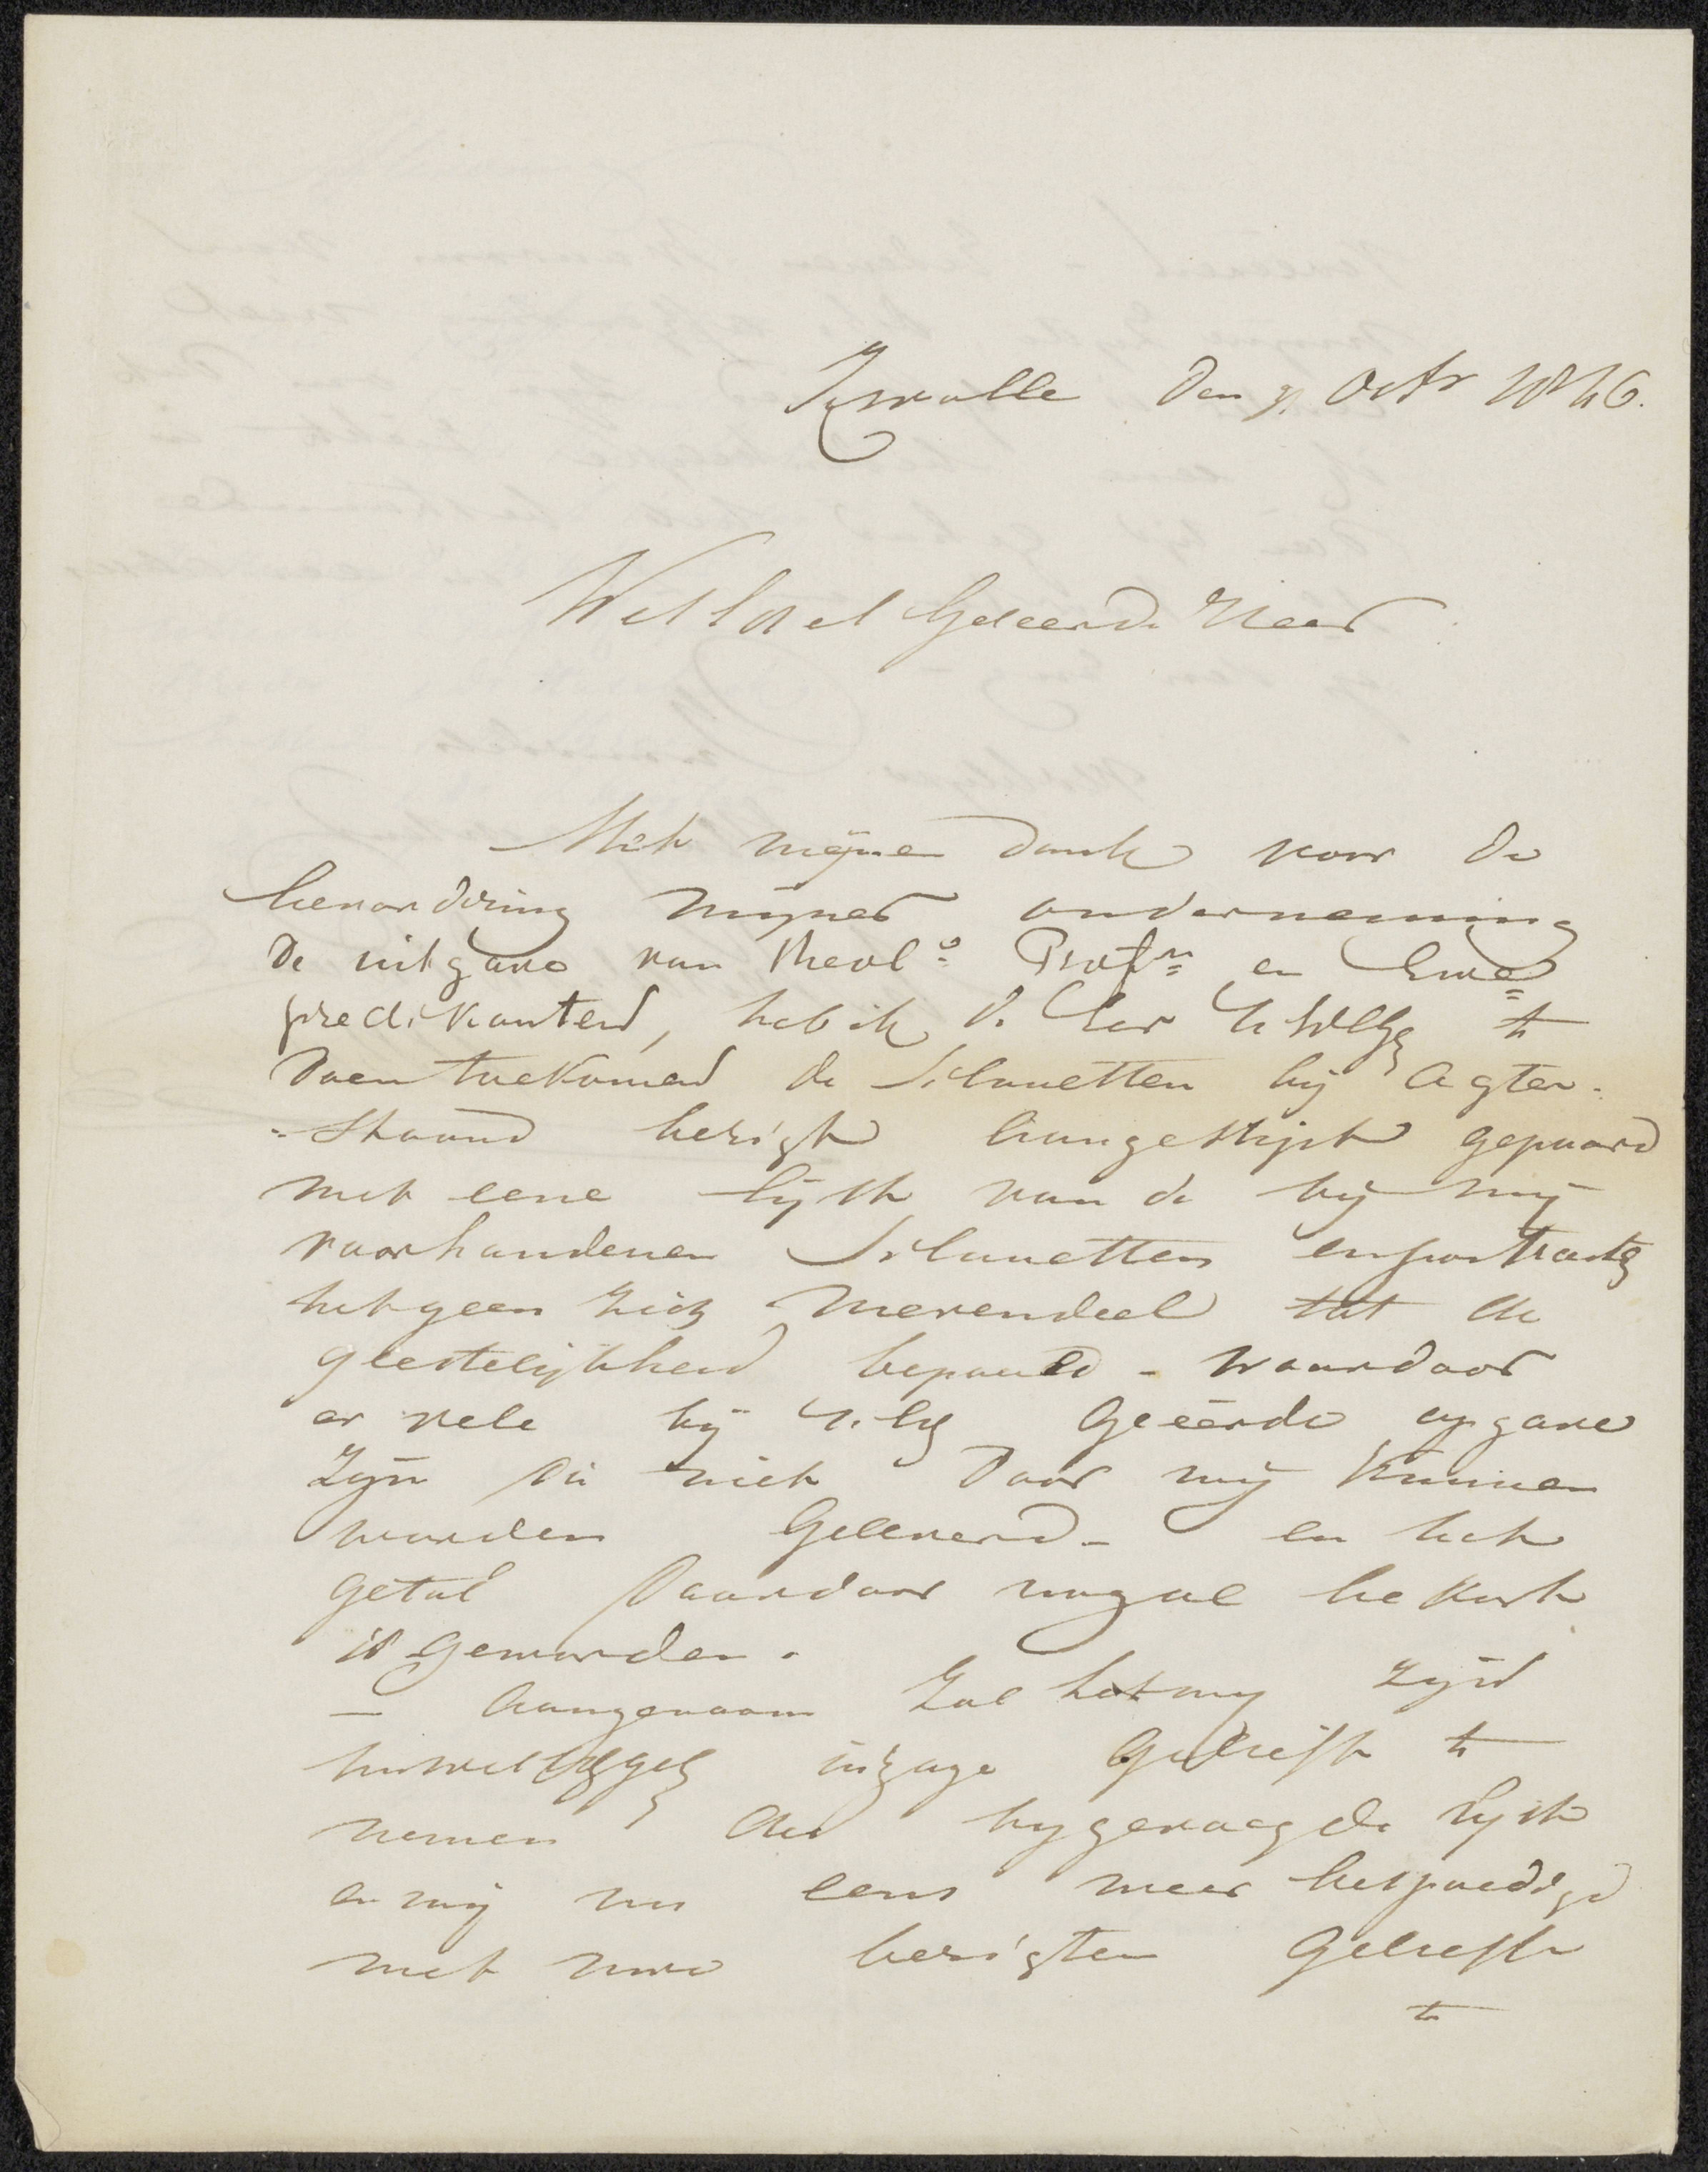 Zwolle den 9 Octr 1846.
Wel Edel Geleerde Heer
Met mijnen dank voor de
bevordering mijner onderneming
de uitgave van Theol: Profrn en Eme
predikanten, heb ik d. Eer U WElG te
doen toekomen de Silouetten bij agter-
-staand berigt aangestipt gepaard
met eene lijst van de bij mij
voorhandenen Silouetten en portraits
hetgeen zich merendeel tot de
geestelijkheid bepaald - waardoor
er vele bij geëerde opgave
zijn die niet door mij kunnen
worden Geleverd - en het
getal daardoor nogal bekort
is geworden.
- Aangenaam zal het mij zijn
inzage gelieft te
nemen der bijgevoegde lijst
en mij nu eens meer bespoedigd
met uwe berigten gelieft
te